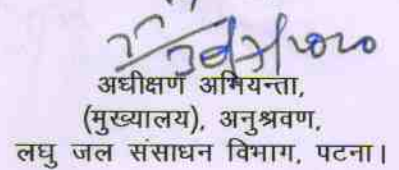 अधीक्षण अभियन्ता,
(मुख्यालय), अनुश्रवण,
लघु जल संसाधन विभाग, पटना।